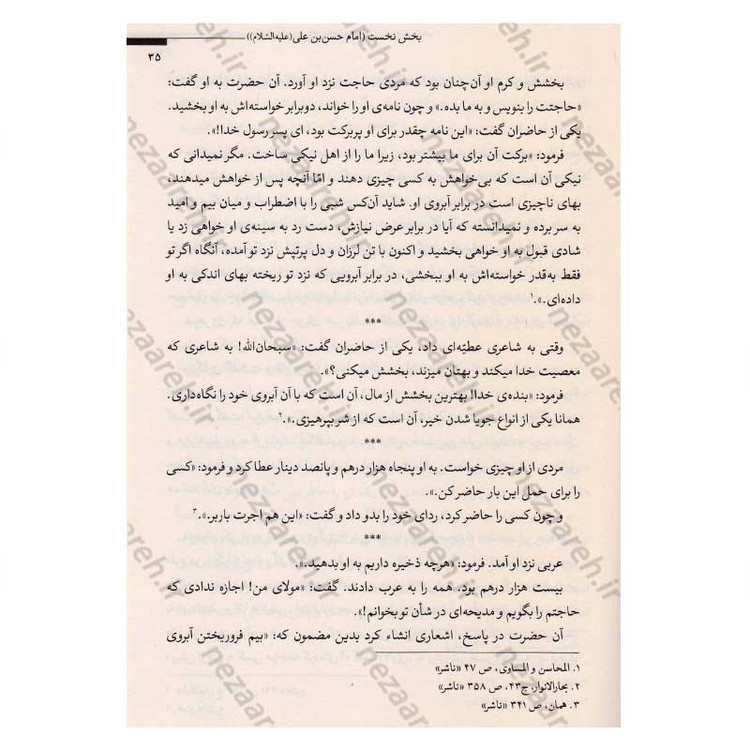 بخش نخست (امام حسن‌بن علی(علیه‌السّلام))
۳۵
بخشش و کرم او آن‌چنان بود که مردی حاجت نزد او آورد. آن حضرت به او گفت:
«حاجتت را بنویس و به ما بده.» و چون نامه‌ی او را خواند، دوبرابر خواسته‌اش به او بخشید.
یکی از حاضران گفت: «این نامه چقدر برای او پربرکت بود، ای پسر رسول خدا!».
فرمود: «برکت آن برای ما بیشتر بود، زیرا ما را از اهل نیکی ساخت. مگر نمیدانی که
نیکی آن است که بی‌خواهش به کسی چیزی دهند و امّا آنچه پس از خواهش میدهند،
بهای ناچیزی است در برابر آبروی او. شاید آن‌کس شبی را با اضطراب و میان بیم و امید
به سر برده و نمیدانسته که آیا در برابر عرض نیازش، دست رد به سینه‌ی او خواهی زد یا
شادی قبول به او خواهی بخشید و اکنون با تن لرزان و دل پرتپش نزد تو آمده، آنگاه اگر تو
فقط به‌قدر خواسته‌اش به او ببخشی، در برابر آبرویی که نزد تو ریخته بهای اندکی به او
داده‌ای.».۱
***
وقتی به شاعری عطیّه‌ای داد، یکی از حاضران گفت: «سبحان‌الله! به شاعری که
معصیت خدا میکند و بهتان میزند، بخشش میکنی؟».
فرمود: «بنده‌ی خدا! بهترین بخشش از مال، آن است که با آن آبروی خود را نگاه‌داری.
همانا یکی از انواع جویا شدن خیر، آن است که از شر بپرهیزی.».۲
***
مردی از او چیزی خواست. به او پنجاه هزار درهم و پانصد دینار عطا کرد و فرمود: «کسی
را برای حمل این بار حاضر کن.».
و چون کسی را حاضر کرد، ردای خود را بدو داد و گفت: «این هم اجرت باربر.».۳
***
عربی نزد او آمد. فرمود: «هرچه ذخیره داریم به او بدهید.».
بیست هزار درهم بود. همه را به عرب دادند. گفت: «مولای من! اجازه ندادی که
حاجتم را بگویم و مدیحه‌ای در شأن تو بخوانم!».
آن حضرت در پاسخ، اشعاری انشاء کرد بدین مضمون که: «بیم فروریختن آبروی
۱. المحاسن و المساوی، ص ۴۷ «ناشر»
۲. بحارالانوار، ج۴۳، ص ۳۵۸ «ناشر»
۳. همان، ص ۳۴۱ «ناشر»
nezaareh.ir